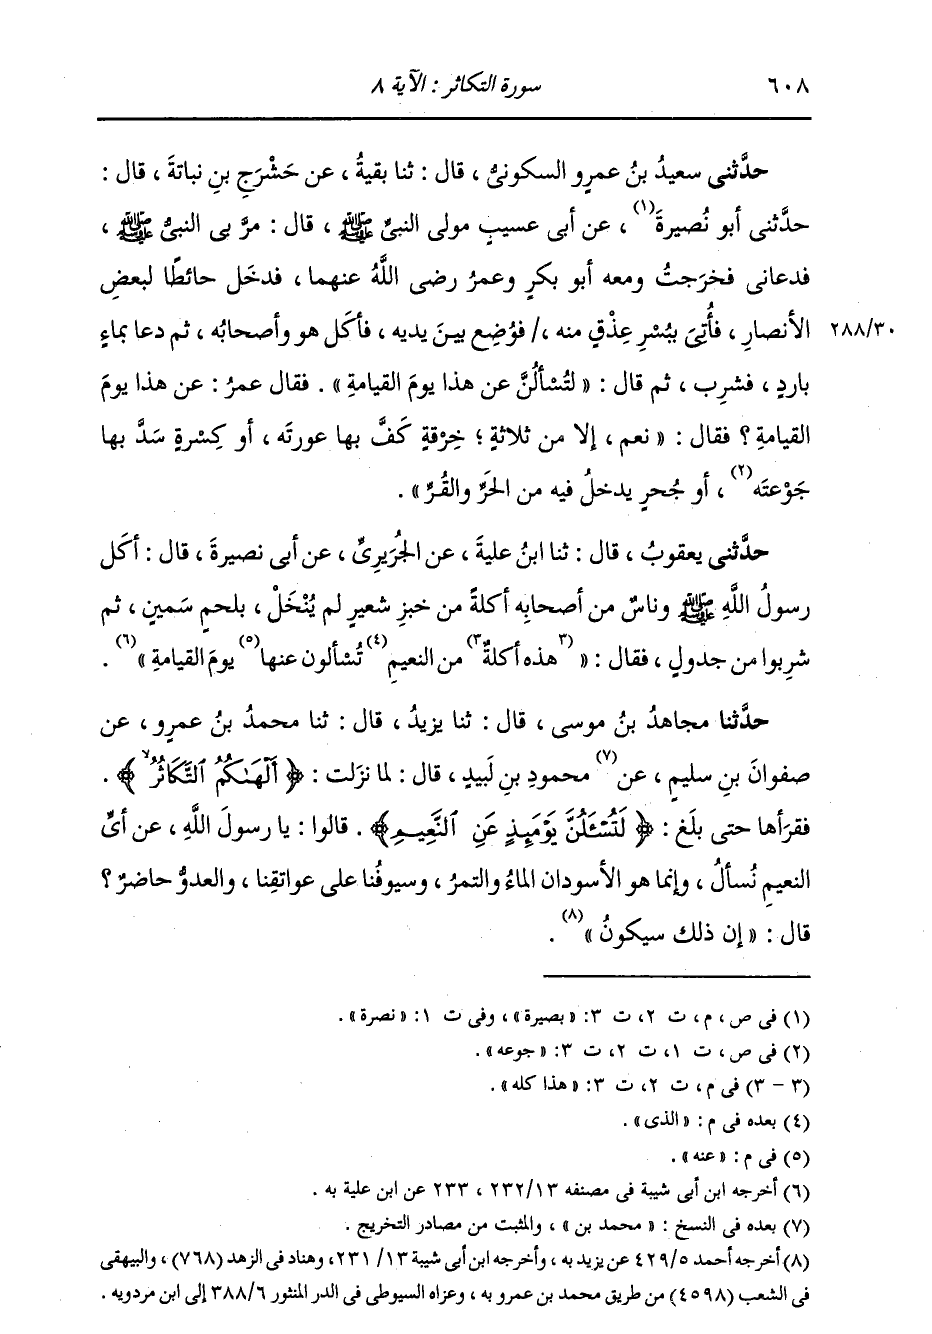 ٦٠٨ سورة التكاثر : الآية ٨
حدَّثنى سعيدُ بنُ عمرٍو السكونىُّ ، قال : ثنا بقيةُ ، عن حَشْرَجِ بنِ نباتةَ ، قال :
حدَّثنى أبو نُصيرةَ(١) ، عن أبى عسيبٍ مولى النبىِّ ﷺ ، قال : مرَّ بى النبىُّ ﷺ ،
فدعانى فخرَجتُ ومعه أبو بكرٍ وعمرُ رضى اللَّهُ عنهما ، فدخَل حائطًا لبعضِ
٢٨٨/٣٠ الأنصارِ ، فأُتِىَ ببُسْرِ عِذْقٍ منه ،/ فوُضِع بينَ يديه ، فأكَل هو وأصحابُه ، ثم دعا بماءٍ
باردٍ ، فشرِب ، ثم قال : « لتُسْألُنَّ عن هذا يومَ القيامةِ » . فقال عمرُ : عن هذا يومَ
القيامةِ ؟ فقال : « نعم ، إلا من ثلاثةٍ ؛ خِرْقةٍ كَفَّ بها عورتَه ، أو كِسْرةٍ سَدَّ بها
جَوْعتَه(٢) ، أو جُحرٍ يدخلُ فيه من الحَرِّ والقُرِّ » .
حدَّثنى يعقوبُ ، قال : ثنا ابنُ عليةَ ، عن الجُرَيرِىِّ ، عن أبى نصيرةَ ، قال : أكَل
رسولُ اللَّهِ ﷺ وناسٌ من أصحابِه أكلةً من خبزِ شعيرٍ لم يُنْخَلْ ، بلحمٍ سَمينٍ ، ثم
شرِبوا من جدولٍ ، فقال : « (٣هذه أكلةٌ٣) من النعيمِ(٤) تُسْألون عنها(٥) يومَ القيامةِ »(٦) .
حدَّثنا مجاهدُ بنُ موسى ، قال : ثنا يزيدُ ، قال : ثنا محمدُ بنُ عمرٍو ، عن
صفوانَ بنِ سليمٍ ، عن(٧) محمودِ بنِ لَبيدٍ ، قال : لما نزَلت : ﴿ أَلْهَىٰكُمُ ٱلتَّكَاثُرُ ﴾ .
فقرَأها حتى بلَغ : ﴿ لَتُسْـَٔلُنَّ يَوْمَئِذٍ عَنِ ٱلنَّعِيمِ ﴾ . قالوا : يا رسولَ اللَّهِ ، عن أىِّ
النعيمِ نُسألُ ، وإنما هو الأسودان الماءُ والتمرُ ، وسيوفُنا على عواتقِنا ، والعدوُّ حاضرٌ ؟
قال : « إن ذلك سيكونُ »(٨) .
(١) فى ص ، م ، ت ٢، ت ٣: « بصيرة » ، وفى ت ١: « نصرة » .
(٢) فى ص ، ت ١، ت ٢، ت ٣: « جوعه » .
(٣ - ٣) فى م ، ت ٢، ت ٣: « هذا كله » .
(٤) بعده فى م : « الذى » .
(٥) فى م : « عنه » .
(٦) أخرجه ابن أبى شيبة فى مصنفه ٢٣٢/١٣ ، ٢٣٣ عن ابن علية به .
(٧) بعده فى النسخ : « محمد بن » ، والمثبت من مصادر التخريج .
(٨) أخرجه أحمد ٤٢٩/٥ عن يزيد به ، وأخرجه ابن أبى شيبة ١٣/ ٢٣١، وهناد فى الزهد (٧٦٨) ، والبيهقى
فى الشعب (٤٥٩٨) من طريق محمد بن عمرو به ، وعزاه السيوطى فى الدر المنثور ٣٨٨/٦ إلى ابن مردويه .